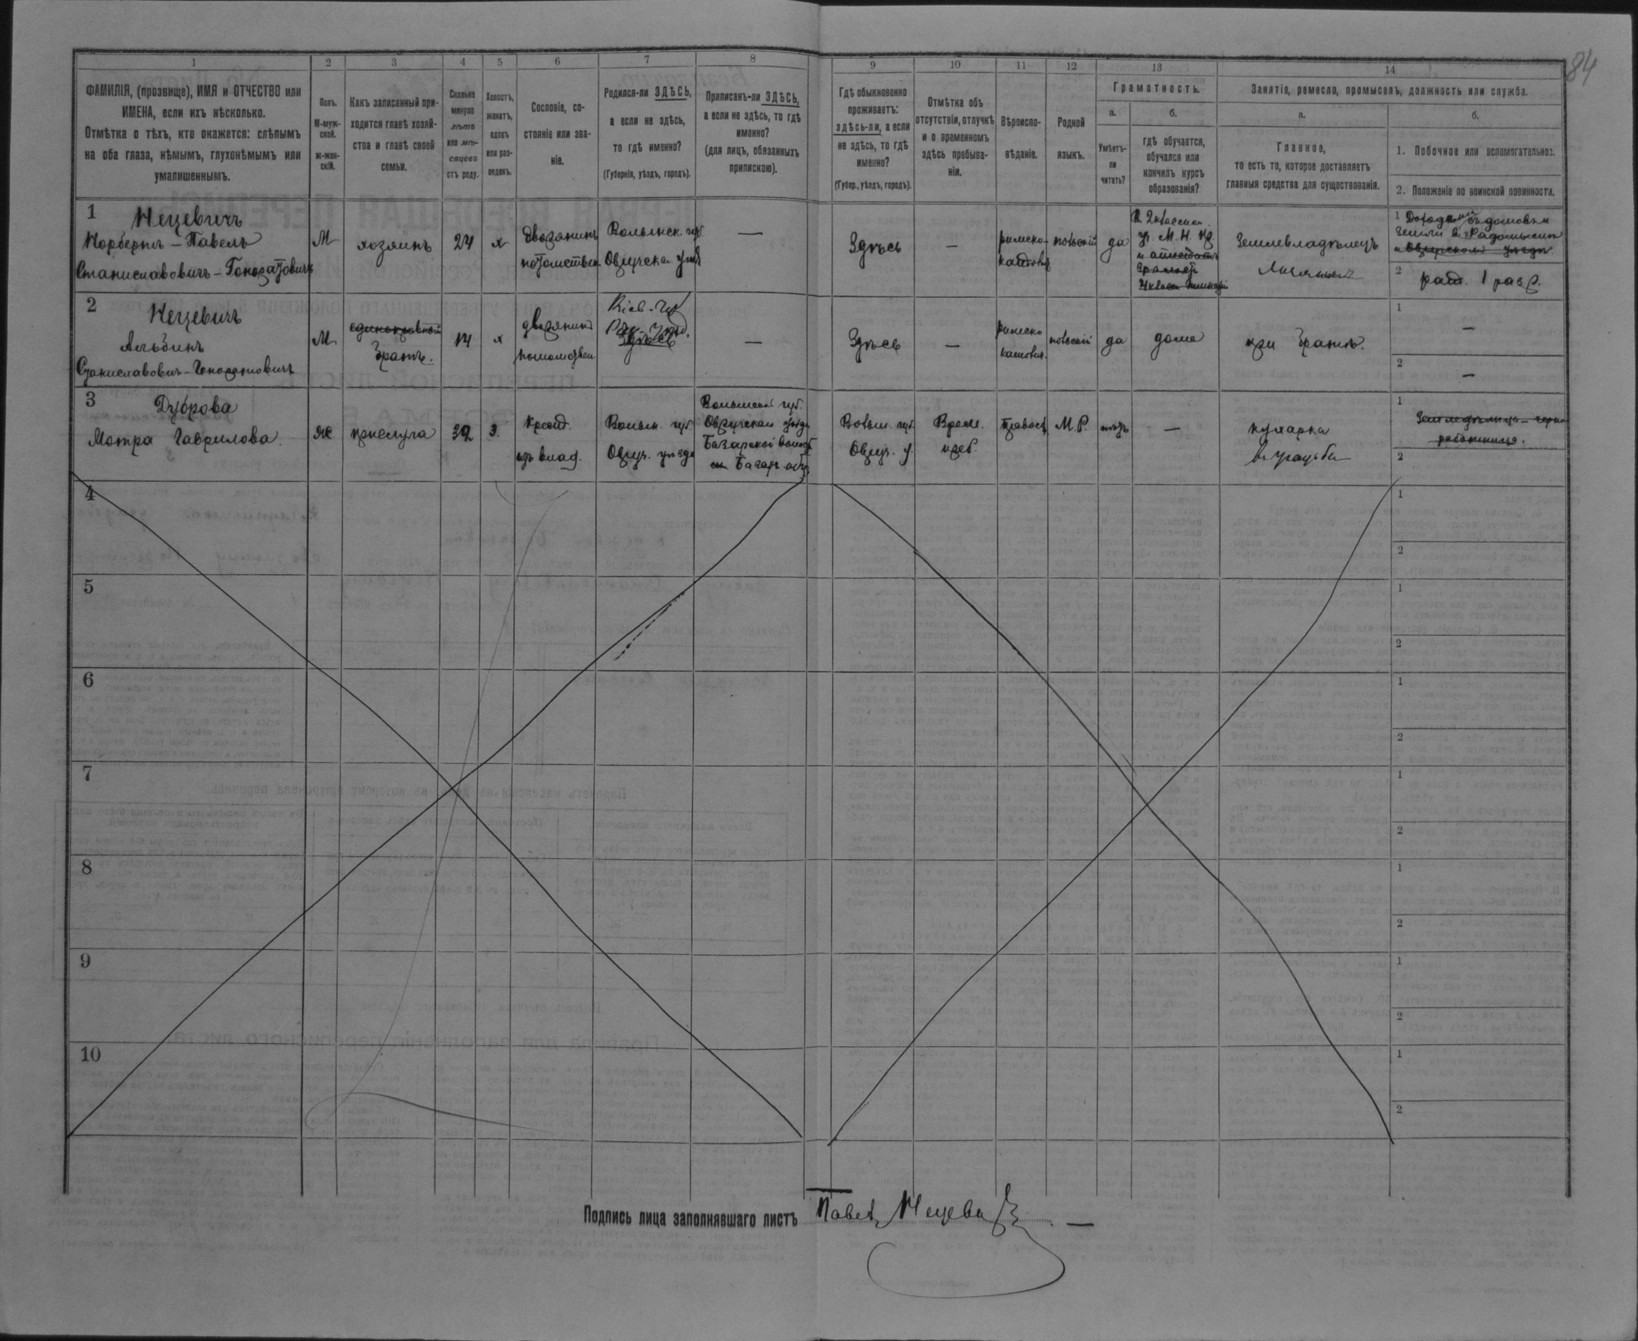 84
1 2 3 4 5 6 7 8 9 10 11 12 13 14
ФАМИЛІЯ, (прозвище), ИМЯ и ОТЧЕСТВО или
ИМЕНА, если ихъ нѣсколько.
Отмѣтка о тѣхъ, кто окажется: слѣпымъ
на оба глаза, нѣмымъ, глухонѣмымъ или
умалишеннымъ.
Полъ.
М-муж-
ской.
ж-жен-
скій.
Какъ записанный при-
ходится главѣ хозяй-
ства и главѣ своей
семьи.
Сколько
минуло
лѣтъ
или мѣ-
сяцевъ
отъ роду.
Холостъ,
женатъ,
вдовъ
или раз-
веденъ.
Сословіе, со-
стояніе или зва-
ніе.
Родился-ли ЗДѢСЬ,
а если не здѣсь,
то гдѣ именно?
(Губернія, уѣздъ, городъ).
Приписанъ-ли ЗДѢСЬ,
а если не здѣсь, то гдѣ
именно?
(для лицъ, обязанныхъ
припискою).
Гдѣ обыкновенно
проживаетъ:
здѣсь-ли, а если
не здѣсь, то гдѣ
именно?
(Губер., уѣздъ, городъ).
Отмѣтка объ
отсутствіи, отлучкѣ
и о временномъ
здѣсь пребыва-
ніи.
Вѣроиспо-
вѣданіе.
Родной
языкъ.
Грамотность.
а.
Умѣетъ-
ли
читать?
б.
гдѣ обучается,
обучался или
кончилъ курсъ
образованія?
Занятіе, ремесло, промыселъ, должность или служба.
а.
Главное,
то есть то, которое доставляетъ
главныя средства для существованія.
б.
1. Побочное или вспомогательное.
2. Положеніе по воинской повинности.
1
Нецевичъ
Норбертъ-Павелъ
Станиславовичъ-Гоноратовичъ
М
хозяинъ
24
х
дворянинъ
потомствен
Волынск. губ
Овручска уѣзд
—
Здѣсь
—
римско-
католик
польскій
да
Землевладѣлецъ
1
2
рат. 1 разр.
2
Нецевичъ
Альбинъ
Станиславовичъ-Гоноратовичъ
М
единокровный
братъ.
14
х
дворянинъ
потомствен
Кіев. губ
Здѣсь
—
Здѣсь
—
римско
католик.
польскій
да
дома
при братѣ.
1
—
2
—
3
Дуброва
Мотра Гаврилова
Ж
прислуга
32
з.
крест.
изъ влад.
Волын. губ
Овруч. уѣзда
Волынской губ.
Овручскаго уѣзда
Базарской волост
Здѣсь
Волын. губ.
Овруч. у.
Врем.
преб.
Правосл
М.Р.
нѣтъ
—
кухарка
въ усадьбѣ
1
работница.
2
4
1
2
5
1
2
6
1
2
7
1
2
8
1
2
9
1
2
10
1
2
Подпись лица заполнявшаго листъ Павелъ Нецевичъ —